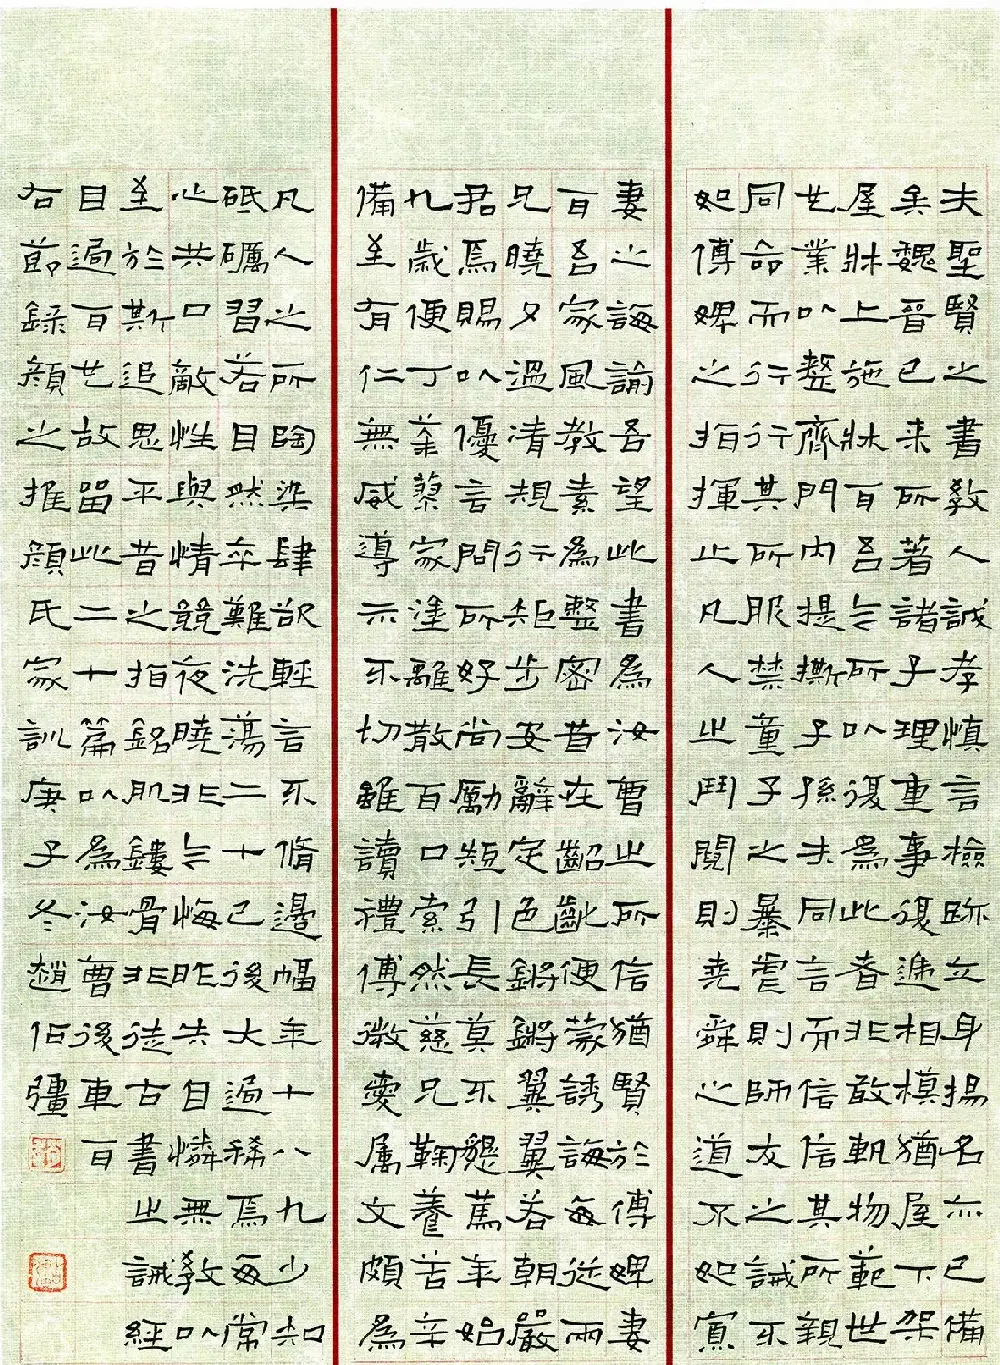 夫聖賢之書教人誠孝慎言檢跡立身揚名亦已備
矣魏晉已來所著諸子理重事復遞相模猶屋下架
屋牀上施牀耳吾今所以復為此者非敢軌物範世
也業以整齊門內提撕子孫夫同言而信信其所親
同命而行行其所服禁童子之暴虐則師友之誡不
如傅婢之指揮止凡人之鬥鬩則堯舜之道不如寡
妻之誨諭吾望此書為汝曹之所信猶賢於傅婢妻
耳吾家風教素為整密昔在齠齔便蒙誘誨每從兩
兄曉夕溫凊規行矩步安辭定色鏘鏘翼翼若朝嚴
君焉賜以優言問所好尚勵短引長莫不懇篤年始
九歲便丁荼蓼家塗離散百口索然慈兄鞠養苦辛
備至有仁無威導示不切雖讀禮傳微愛屬文頗為
凡人之所陶染肆欲輕言不脩邊幅年十八九少知
砥礪習若自然卒難洗蕩二十已後大過稀焉每常
心共口敵性與情競夜曉非今悔昨失自憐無教以
至於斯追思平昔之指銘肌鏤骨非徒古書之誡經
目過耳也故留此二十篇以為汝曹後車耳
右節錄顏之推顏氏家訓庚子冬趙伯彊